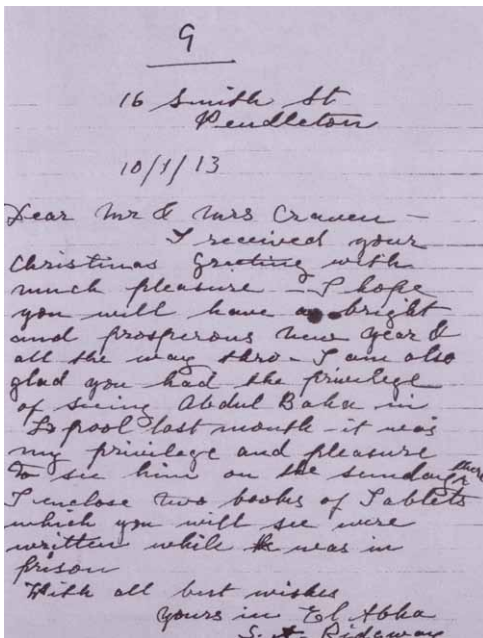 9
16 Smith St
Pendleton
10/1/13
Dear Mr & Mrs Craven –
I received your
Christmas Greeting with
much pleasure – I hope
you will have a bright
and prosperous new year &
all the way thro – I am also
glad you had the privilege
of seeing Abdul Baha in
L'pool last month – it was
my privilege and pleasure
to see him on the sunday there
I enclose two books of Tablets
which you will see were
written while he was in
prison
With all best wishes
yours in El Abha
S. A. Ridgway